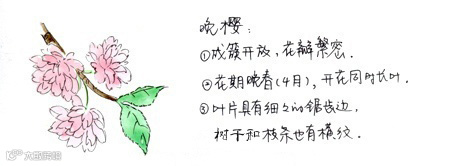 晚樱:
①成簇开放,花瓣繁密.
②花期晚春(4月),开花同时长叶.
③叶片具有细々的锯齿边,
树干和枝条也有横纹.
大城策略